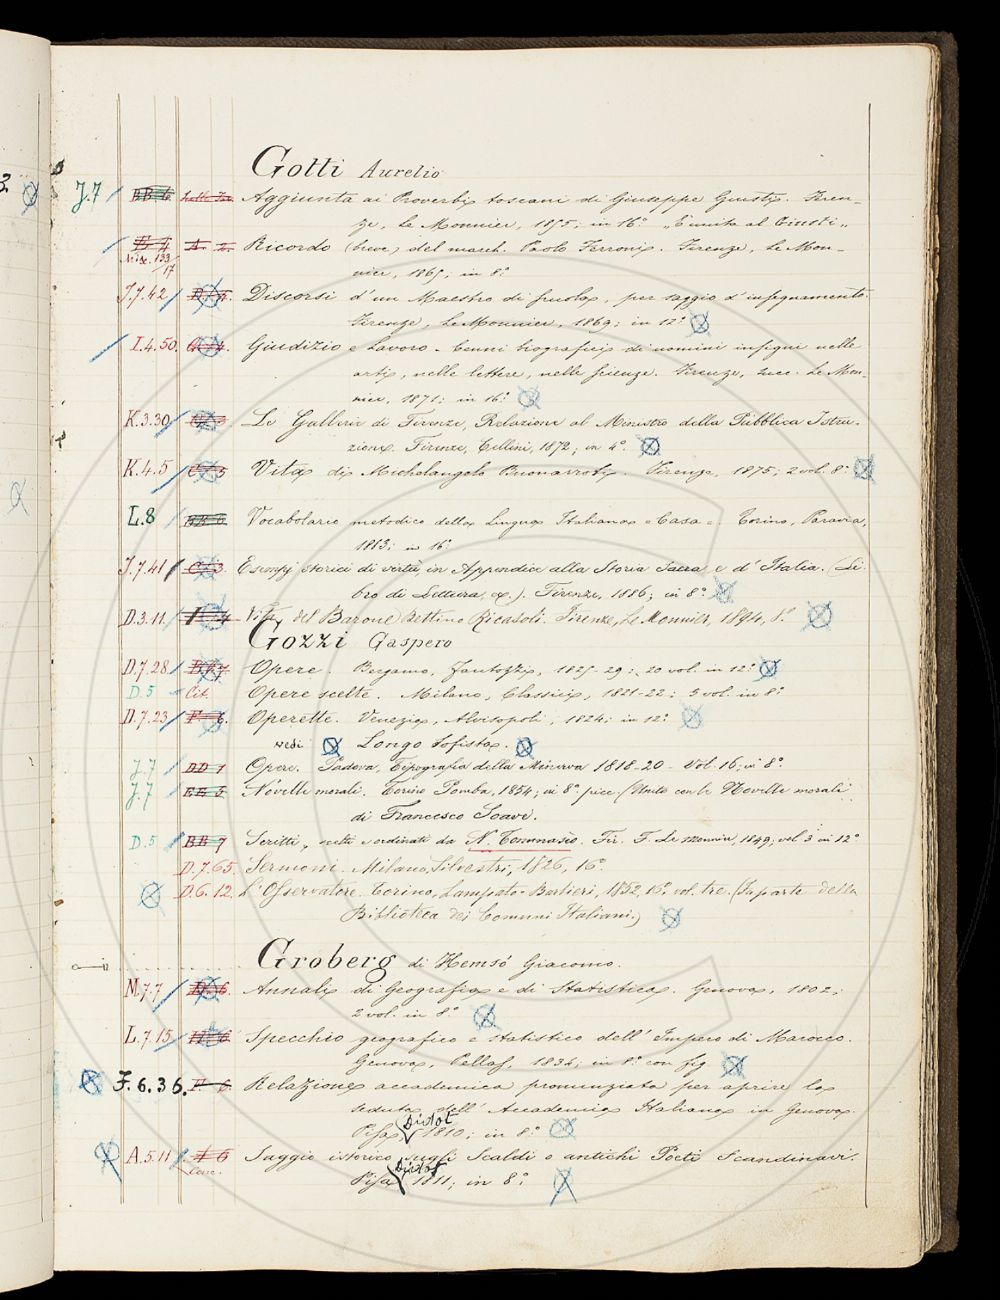 Gotti Aurelio
J.7 Aggiunta ai Proverbi toscani di Giuseppe Giusti. Firen-
ze, Le Monnier, 1875; in 16° „Unita al Giusti„
Ricordo (breve) del march. Paolo Ferroni. Firenze, Le Mon-
nier, 1865; in 8°
J.7.42 Discorsi d'un Maestro di scuola, per saggio d'insegnamento.
Firenze, Le Monnier, 1869; in 12°
I.4.50. Giudizio e Lavoro - Cenni biografici di uomini insigni nelle
arti, nelle lettere, nelle scienze. Firenze, succ. Le Mon-
nier, 1871; in 16°
K.3.30 Le Gallerie di Firenze, Relazione al Ministro della Pubblica Istru-
zione. Firenze, Cellini, 1872; in 4°
K.4.5 Vita di Michelangelo Buonarroti. Firenze, 1875; 2 vol. 8°
L.8 Vocabolario metodico della Lingua Italiana - Casa -. Torino, Paravia,
in 16°
J.7.41 Esempj storici di virtù, in Appendice alla Storia Sacra e d'Italia. (Li-
bro di Lettura). Firenze, 1886; in 8°
D.3.11. Vita del Barone Bettino Ricasoli. Firenze, Le Monnier, 1894, 8°
Gozzi Gaspero
D.7.28 Opere. Bergamo, Fantozzi, 1825-29; 20 vol. in 12°
D.5 - Cit. Opere scelte. Milano, Classici, 1821-22; 5 vol. in 8°
D.7.23 Operette. Venezia, Alvisopoli, 1824; in 12°
vedi Longo Sofista.
J.7 Opere. Padova, Tipografia della Minerva 1818-20 - vol. 16; in 8°
J.7 Novelle morali. Torino Pomba, 1854; in 8° picc. (Unito con le Novelle morali
di Francesco Soave.
D.5 Scritti, scelti e ordinati da N. Tommaseo. Fir. F. Le Monnier, 1849, vol. 3 in 12°
D.7.65. Sermoni. Milano, Silvestri, 1826, 16°.
D.6.12. L'Osservatore. Torino, Lampato-Barbieri, 1852, 16° vol. tre. (Fa parte della
Biblioteca dei Comuni Italiani.)
Groberg di Hemsö Giacomo.
M.7.7 Annali di Geografia e di Statistica. Genova, 1802;
2 vol. in 8°
L.7.15. Specchio geografico e statistico dell'Impero di Marocco.
Genova, Pellas, 1834; in 8° con fig
F.6.36. Relazione accademica pronunziata per aprire la
seduta dell'Accademia Italiana in Genova.
Pisa, Didot 1810; in 8°
A.5.11 Saggio istorico sugli Scaldi o antichi Poeti Scandinavi.
Pisa Didot 1811; in 8°